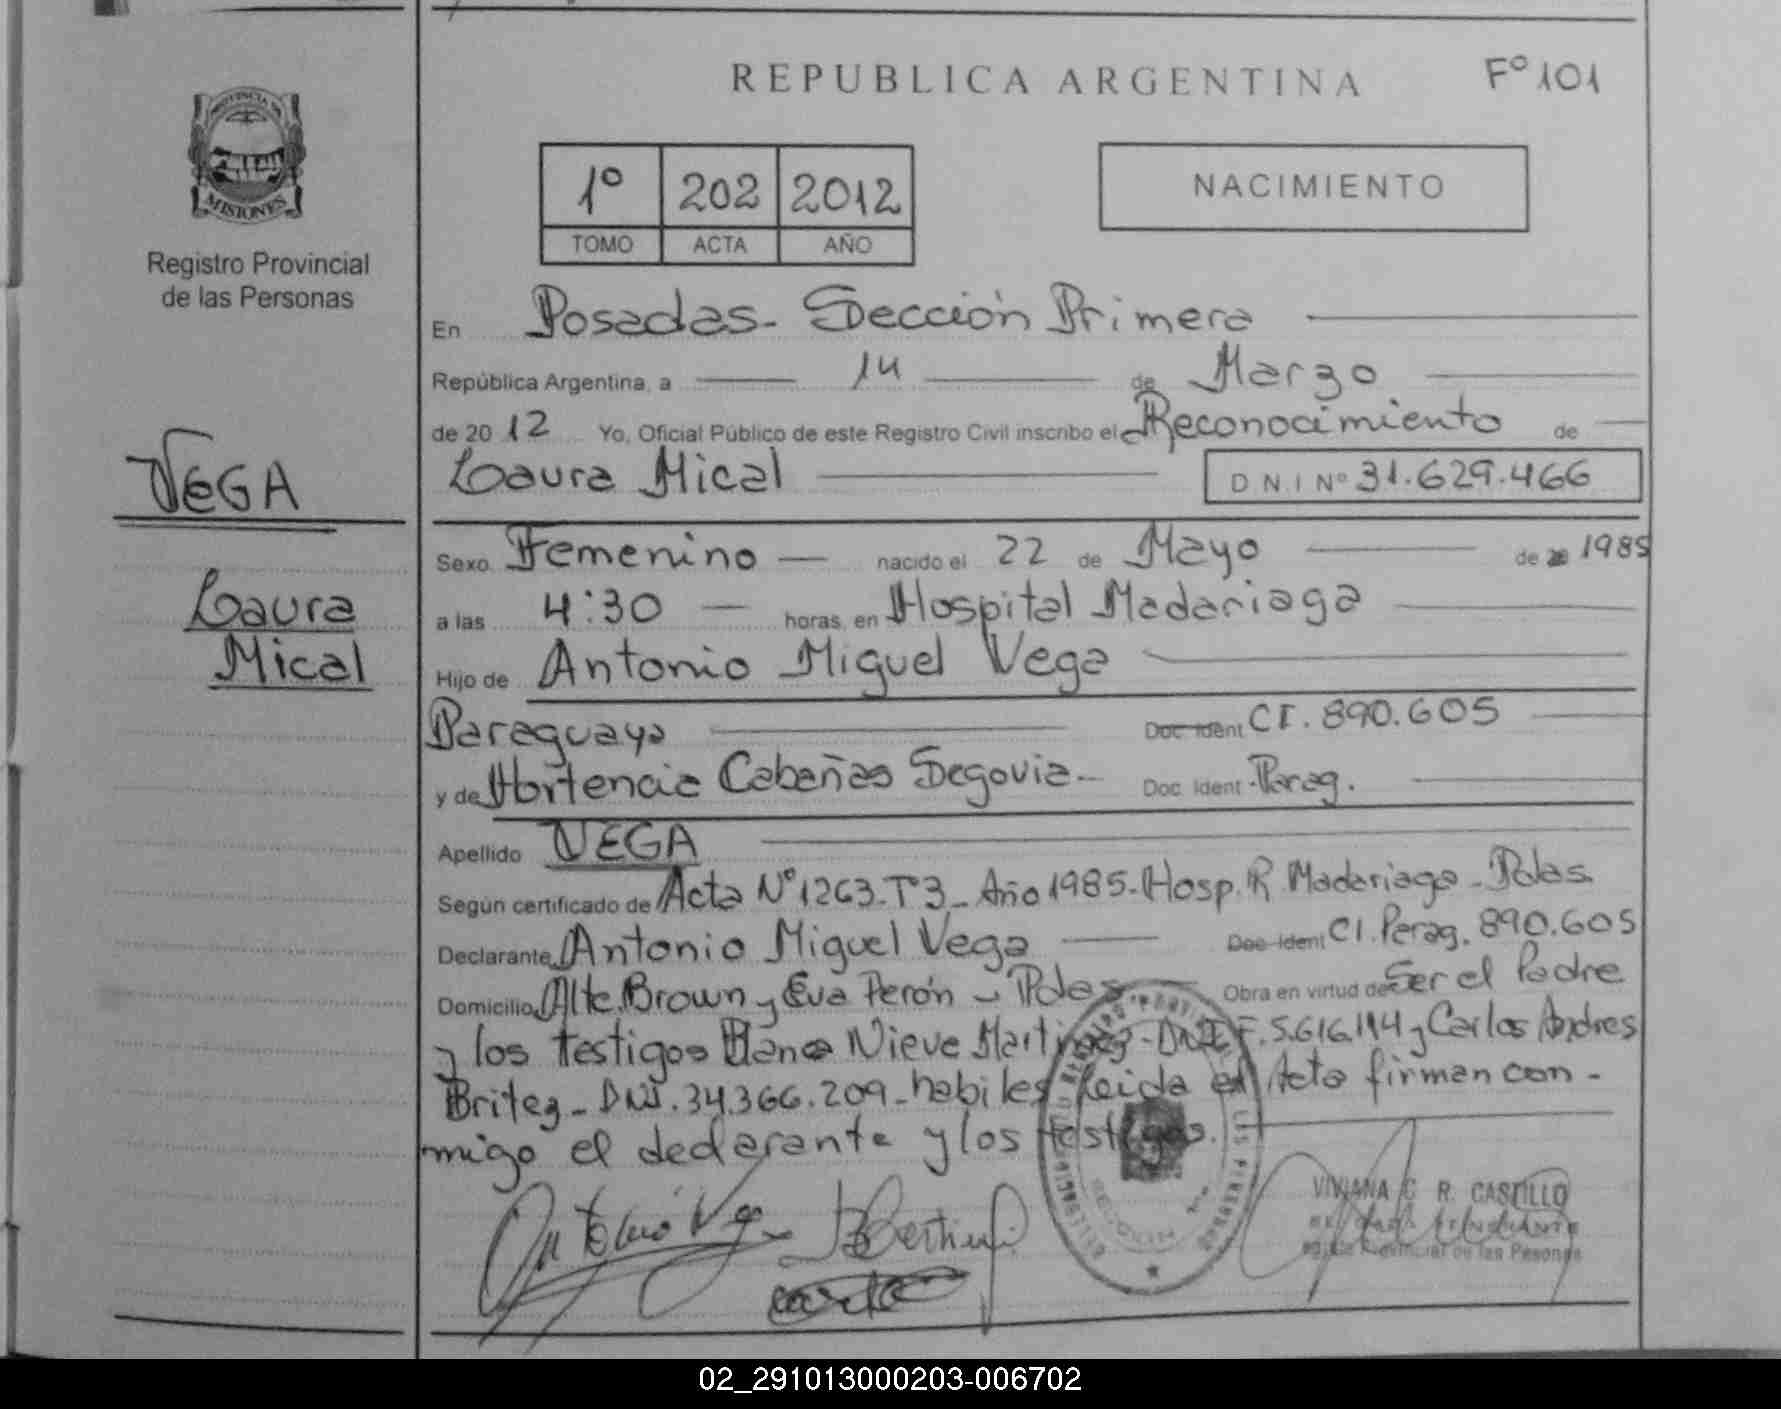 REPUBLICA ARGENTINA
Fº 101
PROVINCIA DE
MISIONES
Registro Provincial
de las Personas
1º 202 2012
TOMO ACTA AÑO
NACIMIENTO
En Posadas- Sección Primera
República Argentina, a 14 de Marzo
de 20 12 Yo, Oficial Público de este Registro Civil inscribo el Reconocimiento de
Laura Mical D.N.I Nº 31.629.466
VEGA
Laura
Mical
Sexo Femenino nacido el 22 de Mayo de 1985
a las 4:30 horas, en Hospital Madariaga
Hijo de Antonio Miguel Vega
Paraguaya Doc Ident CI. 890.605
y de Hortencia Cabañas Segovia- Doc Ident Parag.
Apellido VEGA
Según certificado de Acta Nº 1263-Tº3- Año 1985-Hosp. R. Madariaga - Pdas.
Declarante Antonio Miguel Vega Doc Ident CI. Parag. 890.605
Domicilio Alte. Brown y Eva Perón - Pdas Obra en virtud de Ser el Padre
y los testigos Blanca Nieve Martinez - DNI F. 5.616.114 y Carlos Andres
Britez - DNI. 34.366.209 - habiles Leida el Acta firman con-
migo el declarante y los testigos.
Antonio Vega
VIVIANA C R. CASTILLO
Provincial de las Personas
02_291013000203-006702